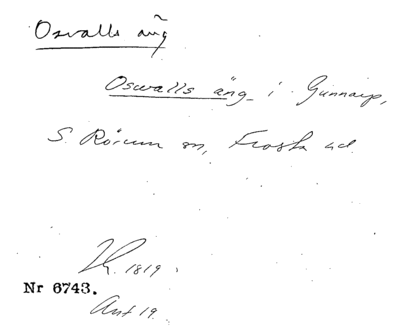 Osvalls äng
Oswalls äng i Gunnarp,
S. Rörum sn, Frosta hd.
1819
Nr 6743.
Ant 19